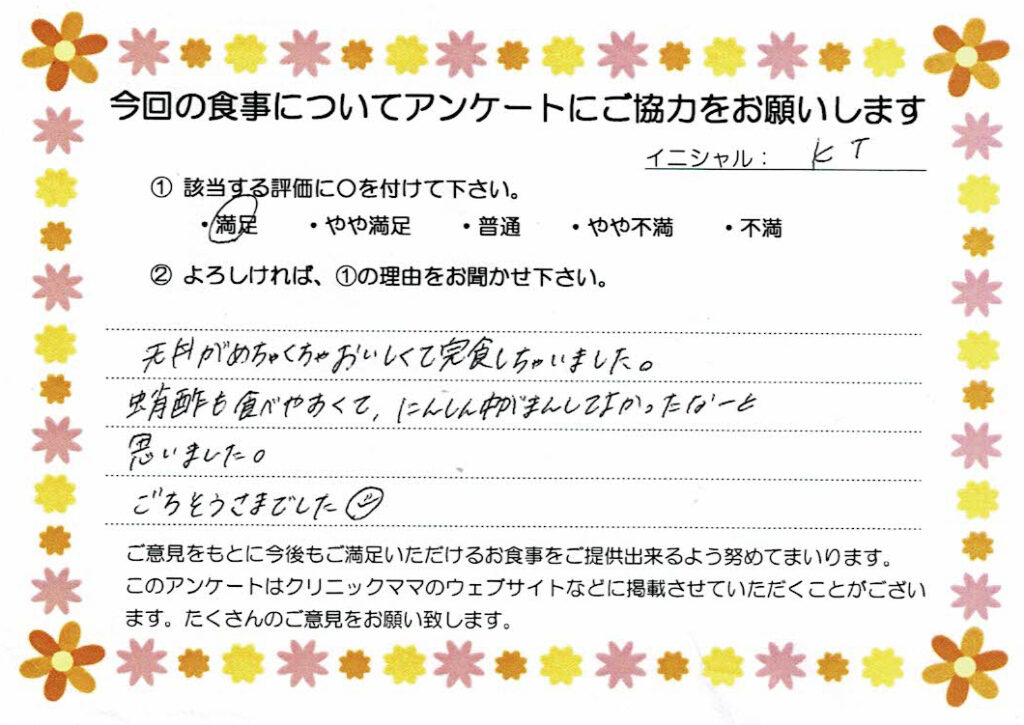 今回の食事についてアンケートにご協力をお願いします
イニシャル： KT
① 該当する評価に〇を付けて下さい。
・満足 ・やや満足 ・普通 ・やや不満 ・不満
② よろしければ、①の理由をお聞かせ下さい。
がめちゃくちゃおいしくて完食しちゃいました。
蛸酢も食べやすくて、にんしん中がまんしてよかったなーと
思いました。
ごちそうさまでした
ご意見をもとに今後もご満足いただけるお食事をご提供出来るよう努めてまいります。
このアンケートはクリニックママのウェブサイトなどに掲載させていただくことがござい
ます。たくさんのご意見をお願い致します。